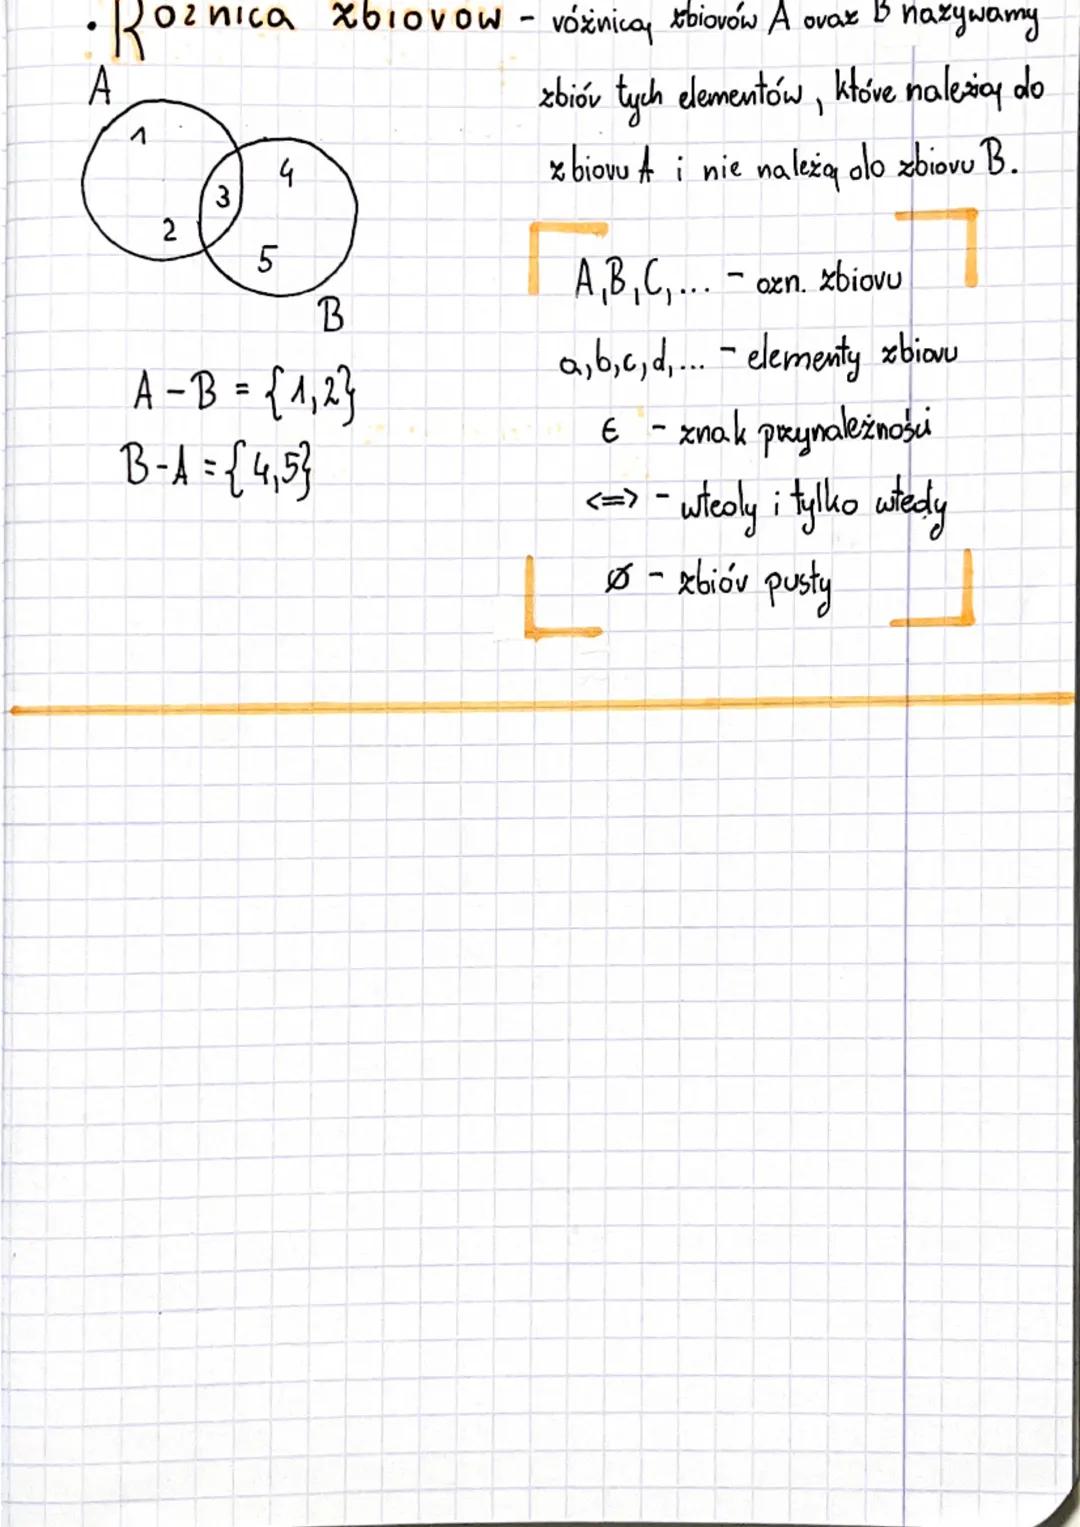 • Różnica zbiorów - różnicą zbiorów A oraz B nazywamy
zbiór tych elementów, które należą do
zbioru A i nie należą do zbioru B.
A
1
2
3
4
5
B
A-B = {1,2}
B-A = {4,5}
A,B,C,... - ozn. zbioru
a,b,c,d,... - elementy zbioru
∈ - znak przynależności
<=> - wtedy i tylko wtedy
Ø - zbiór pusty